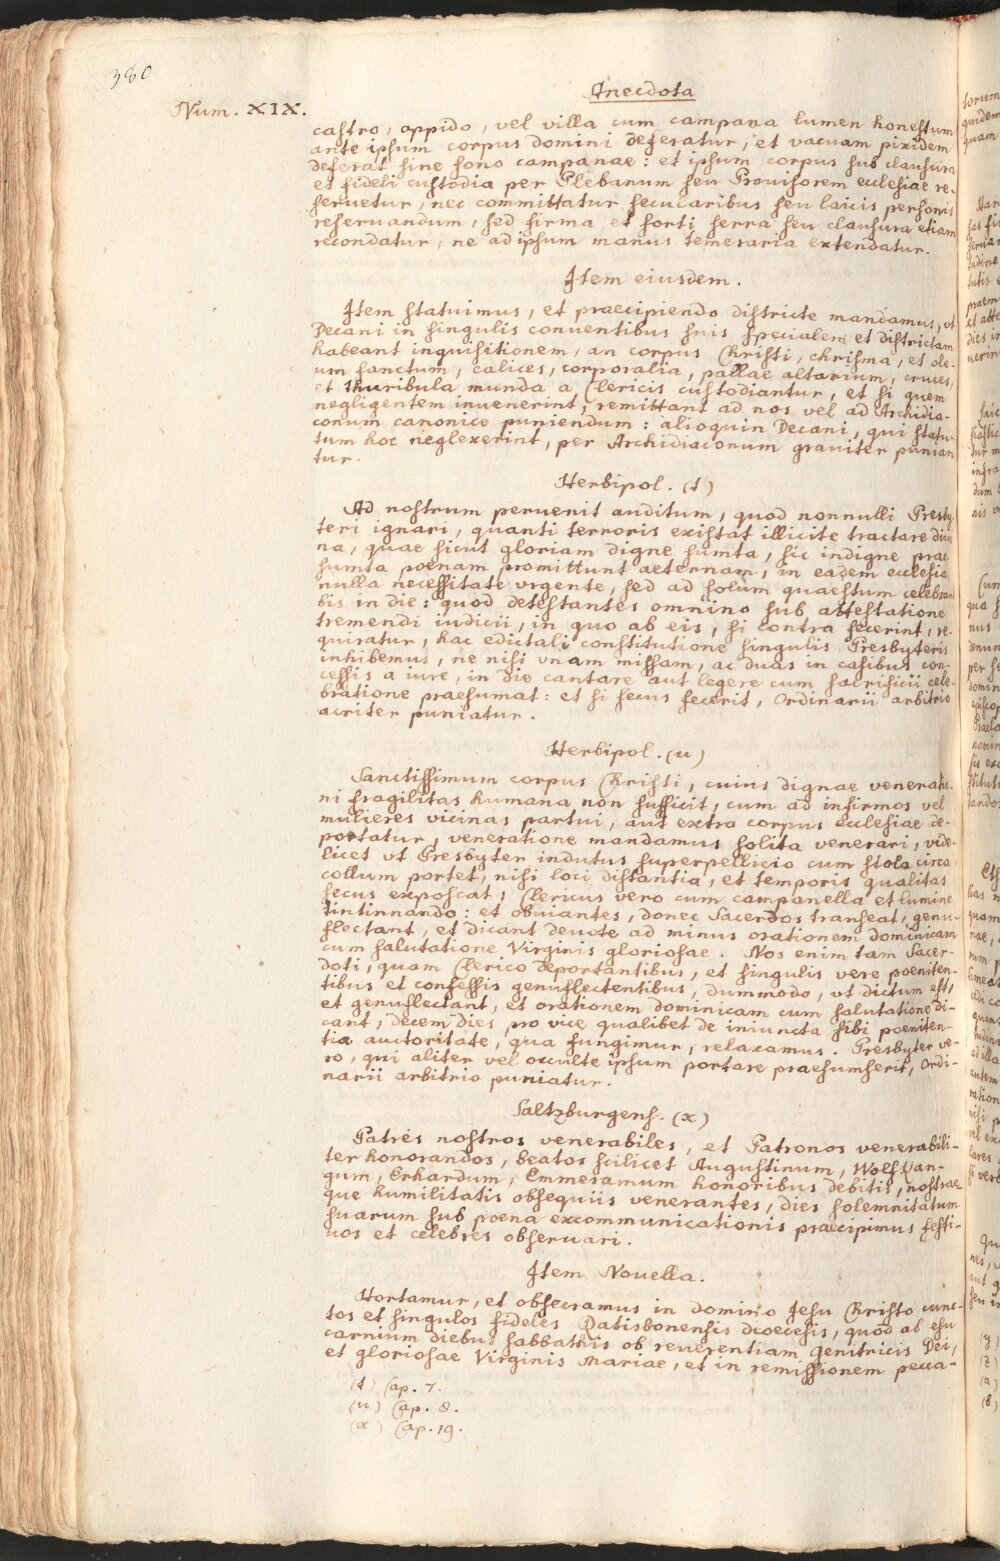 380
Anecdota
Num. XIX.
castro, oppido, vel villa cum campana lumen honestum
ante ipsum corpus domini deferatur, et vacuam pixidem
deferat sine sono campanae: et ipsum corpus sub clausura
et fideli custodia per Plebanum seu Prouisorem ecclesiae re-
seruetur, nec committatur secularibus seu laicis personis
reseruandum, sed firma et forti serra seu clausura etiam
recondatur, ne ad ipsum manus temeraria extendatur.
Item eiusdem.
Item statuimus, et praecipiendo districte mandamus, vt
Decani in singulis conuentibus suis specialem et districtam
habeant inquisitionem, an corpus Christi, chrisma, et ole-
um sanctum, calices, corporalia, pallae altarium, cruces,
et thuribula munda a Clericis custodiantur, et si quem
negligentem inuenerint, remittant ad nos vel ad Archidia-
conum canonice puniendum: alioquin Decani, qui statu-
tum hoc neglexerint, per Archidiaconum grauiter punian
tur.
Herbipol. (t)
Ad nostrum peruenit auditum, quod nonnulli Presby-
teri ignari, quanti terroris existat illicite tractare diui
na, quae sicut gloriam digne sumta, sic indigne prae
sumta poenam promittunt aeternam, in eadem ecclesia
nulla necessitate vrgente, sed ad solum quaestum celebran
bis in die: quod detestantes omnino sub attestatione
tremendi iudicii, in quo ab eis, si contra fecerint, re-
quiratur, hac edictali constitutione singulis Presbyteris
inhibemus, ne nisi vnam missam, ac duas in casibus con-
cessis a iure, in die cantare aut legere cum sacrificii cele-
bratione praesumat: et si secus fecerit, Ordinarii arbitrio
acriter puniatur.
Herbipol. (u)
Sanctissimum corpus Christi, cuius dignae veneratio-
ni fragilitas humana non sufficit, cum ad infirmos vel
mulieres vicinas partui, aut extra corpus ecclesiae de-
portatur, veneratione mandamus solita venerari, vide-
licet vt Presbyter indutus superpellicio cum stola circa
collum portet, nisi loci distantia, et temporis qualitas
secus exposcat; Clericus vero cum campanella et lumine
tintinnando: et obuiantes, donec Sacerdos transeat, genu-
flectant, et dicant deuote ad minus orationem dominicam
cum salutatione Virginis gloriosae. Nos enim tam Sacer-
doti, quam Clerico deportantibus, et singulis vere poeniten-
tibus et confessis genuflectentibus, dummodo, vt dictum est,
et genuflectant, et orationem dominicam cum salutatione di-
cant, decem dies pro vice qualibet de iniuncta sibi poeniten-
tia auctoritate, qua fungimur, relaxamus. Presbyter ve-
ro, qui aliter vel occulte ipsum portare praesumserit, Ordi-
narii arbitrio puniatur.
Saltzburgens. (x)
Patres nostros venerabiles, et Patronos venerabili-
ter honorandos, beatos scilicet Augustinum, Wolfgan-
gum, Erhardum, Emmeramum honoribus debitis, nostrae-
que humilitatis obsequiis venerantes, dies solemnitatum
suarum sub poena excommunicationis praecipimus festi-
uos et celebres obseruari.
Item Nouella.
Hortamur, et obsecramus in domino Jesu Christo cunc-
tos et singulos fideles Ratisbonensis dioecesis, quod ab esu
carnium diebus sabbathis ob reuerentiam genitricis Dei,
et gloriosae Virginis Mariae, et in remissionem pecca-
(t) Cap. 7.
(u) Cap. 8.
(x) Cap. 19.